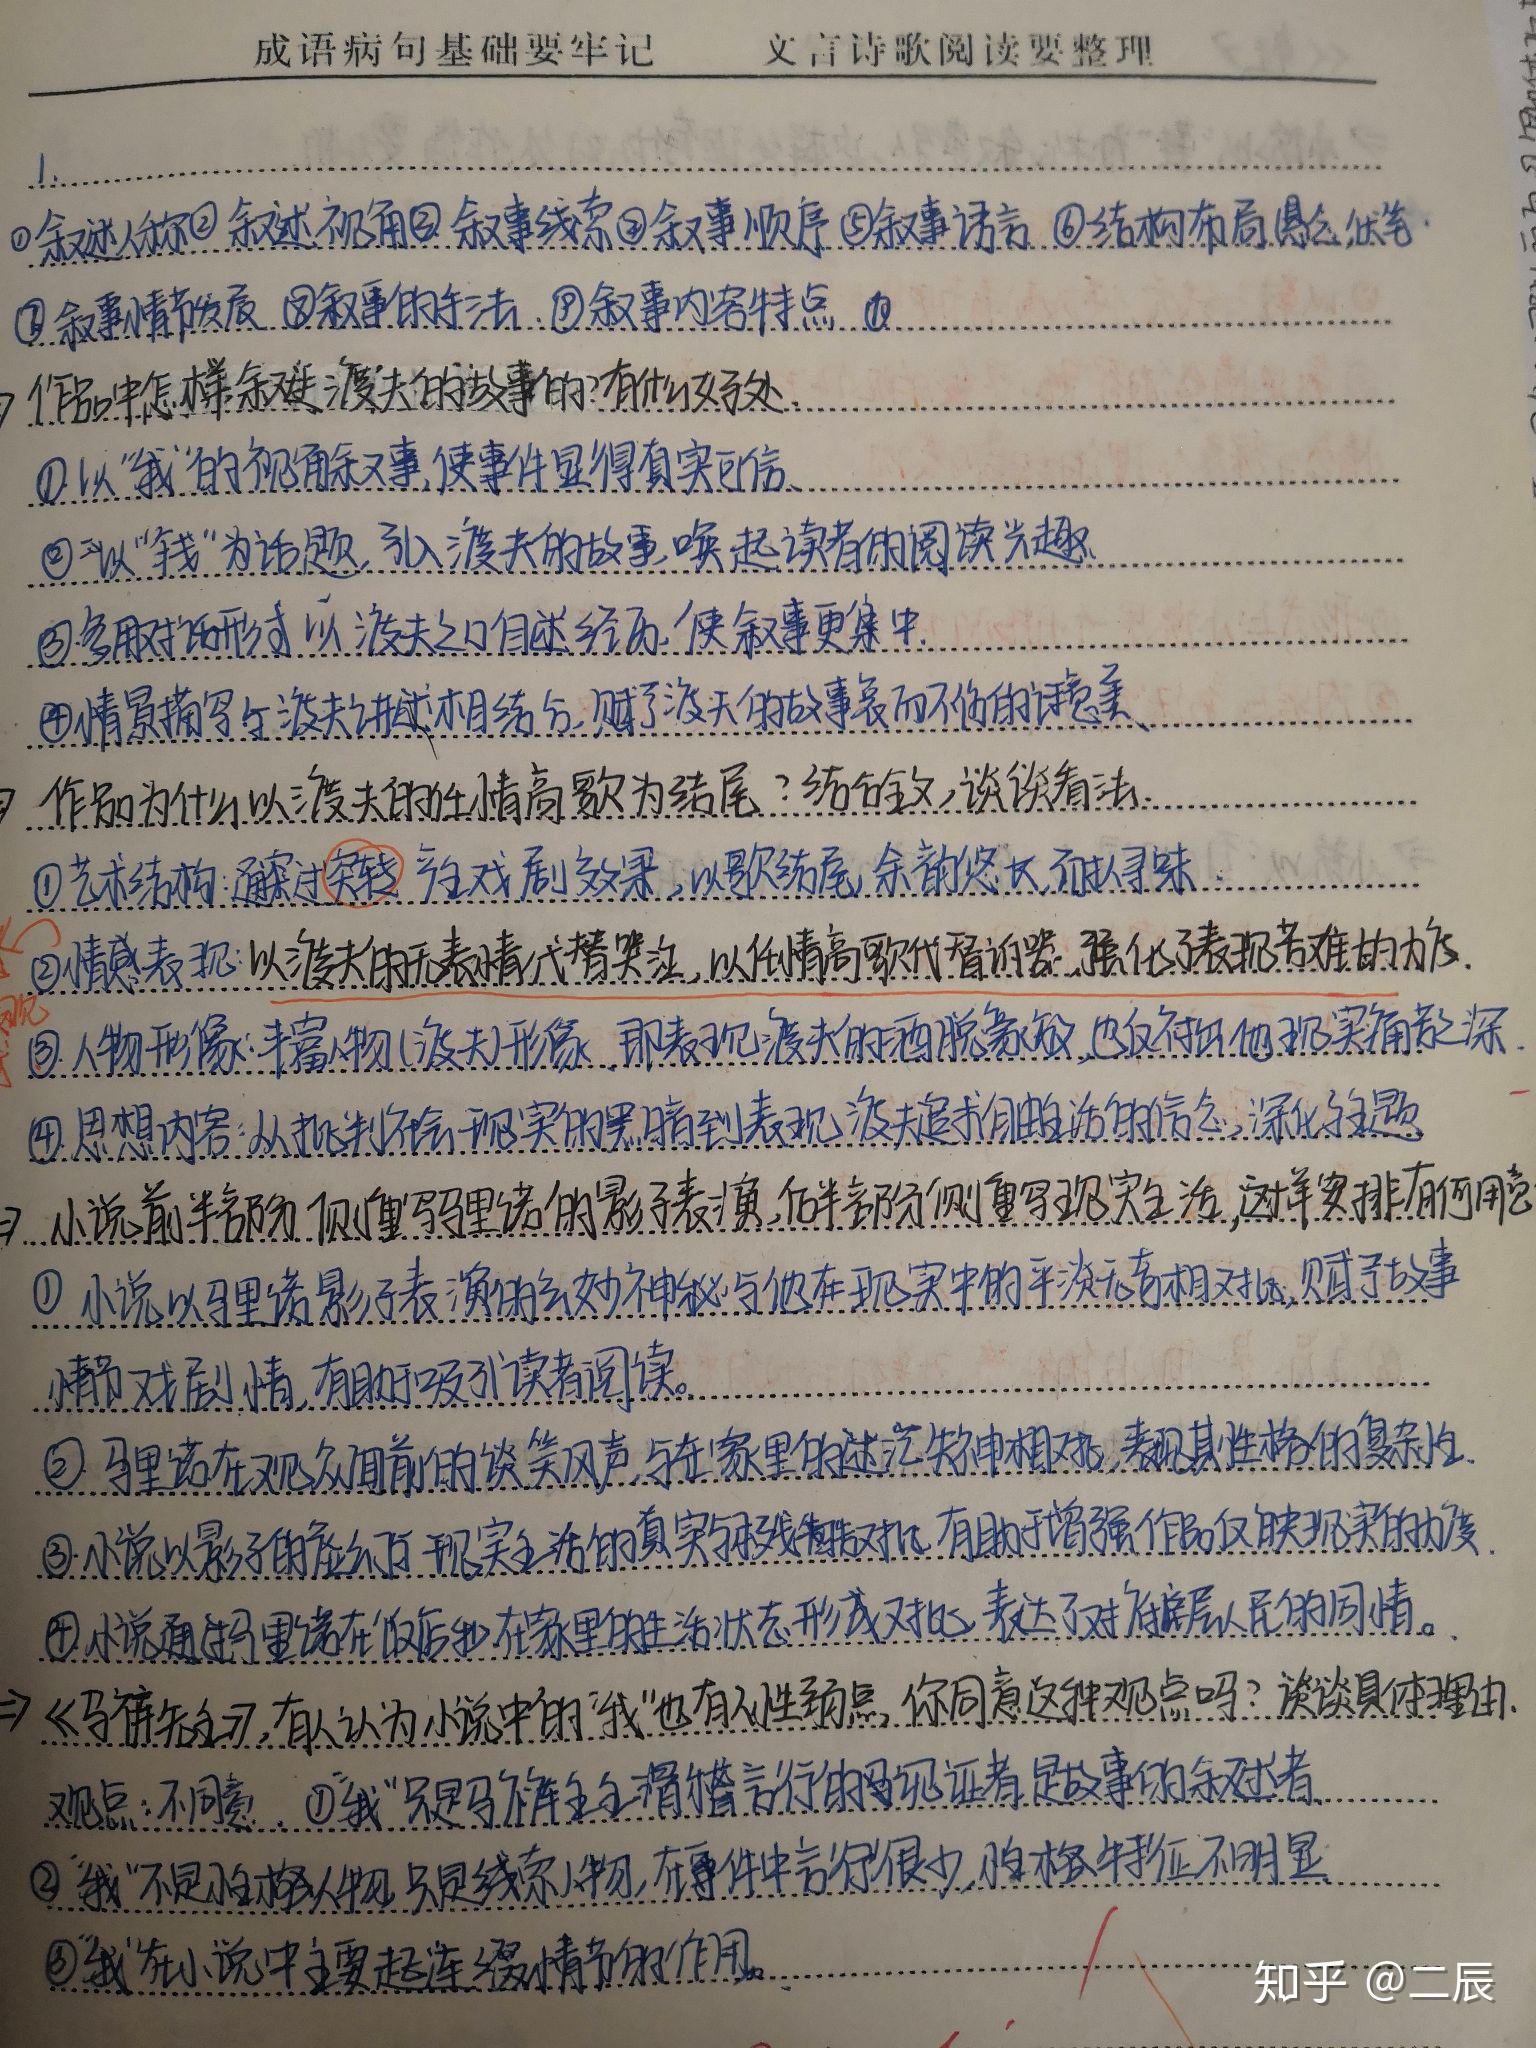 成语病句基础要牢记 文言诗歌阅读要整理
1.
①叙述人称②叙述视角③叙事线索④叙事顺序⑤叙事语言 ⑥结构布局悬念,伏笔.
⑦叙事情节发展 ⑧叙事的手法.⑨叙事内容特点
作品中怎样叙述渡夫的故事的?有什么好处.
①以“我”的视角叙事,使事件显得真实可信、
②以“钱”为话题,引入渡夫的故事,唤起读者的阅读兴趣.
③多用对话形式以渡夫之口自述经历,使叙事更集中.
④情景描写与渡夫讲述相结合,赋予渡夫的故事哀而不伤的诗意美、
作品为什么以渡夫的任情高歌为结尾?结合全文,谈谈看法.
①艺术结构:通过突转产生戏剧效果,以歌结尾,余韵悠长,耐人寻味.
②情感表现:以渡夫的无表情代替哭泣,以任情高歌代替诉苦.强化了表现苦难的力度.
③.人物形象:丰富人物(渡夫)形象.即表现渡夫的洒脱豪放,也反衬出他现实痛苦之深.
④.思想内容:从批判社会现实的黑暗到表现渡夫追求自由生活的信念,深化主题
⇒小说前半部分侧重写马里诺的影子表演,后半部分侧重写现实生活,这样安排有何用意
① 小说以马里诺影子表演的玄妙神秘与他在现实中的平淡无奇相对比,赋予故事
情节戏剧情,有助于吸引读者阅读。
②.马里诺在观众面前的谈笑风声,与在家里的迷茫失神相对比,表现其性格的复杂性.
③.小说以影子的虚幻与现实生活的真实与残酷对比,有助于增强作品反映现实的力度.
④.小说通过马里诺在饭店和在家里的生活状态形成对比,表达了对底层人民的同情。
⇒《马裤先生》,有人认为小说中的“我”也有人性弱点,你同意这种观点吗?谈谈具体理由.
观点:不同意.①“我”只是马裤先生滑稽言行的见证者,是故事的叙述者、
②“我”不是性格人物,只是线索人物,在事件中言行很少,性格特征不明显
③“我”在小说中主要起连缀情节的作用。
知乎 @二辰